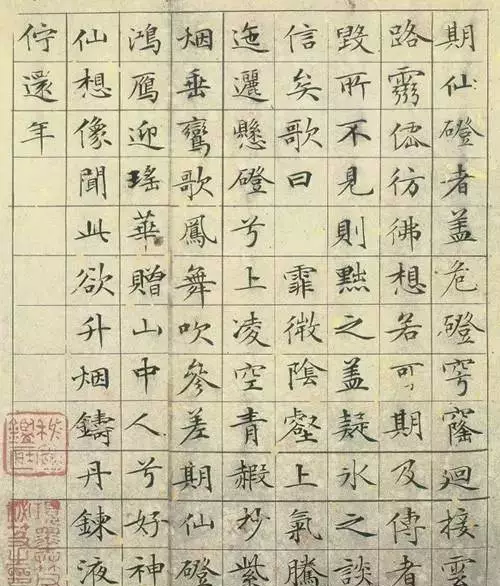 期仙磴者盖危磴穹窿迴接雲
路靈僊彷彿想若可期及傳者
毀所不見則黜之盖疑冰之談
信矣歌曰霏微陰壑上氣騰
迤邐懸磴兮上凌空青赮杪紫
烟垂鸞歌鳳舞吹參差期仙磴
鴻鴈迎瑤華贈山中人兮好神
仙想像聞此欲升烟鑄丹鍊液
佇還年